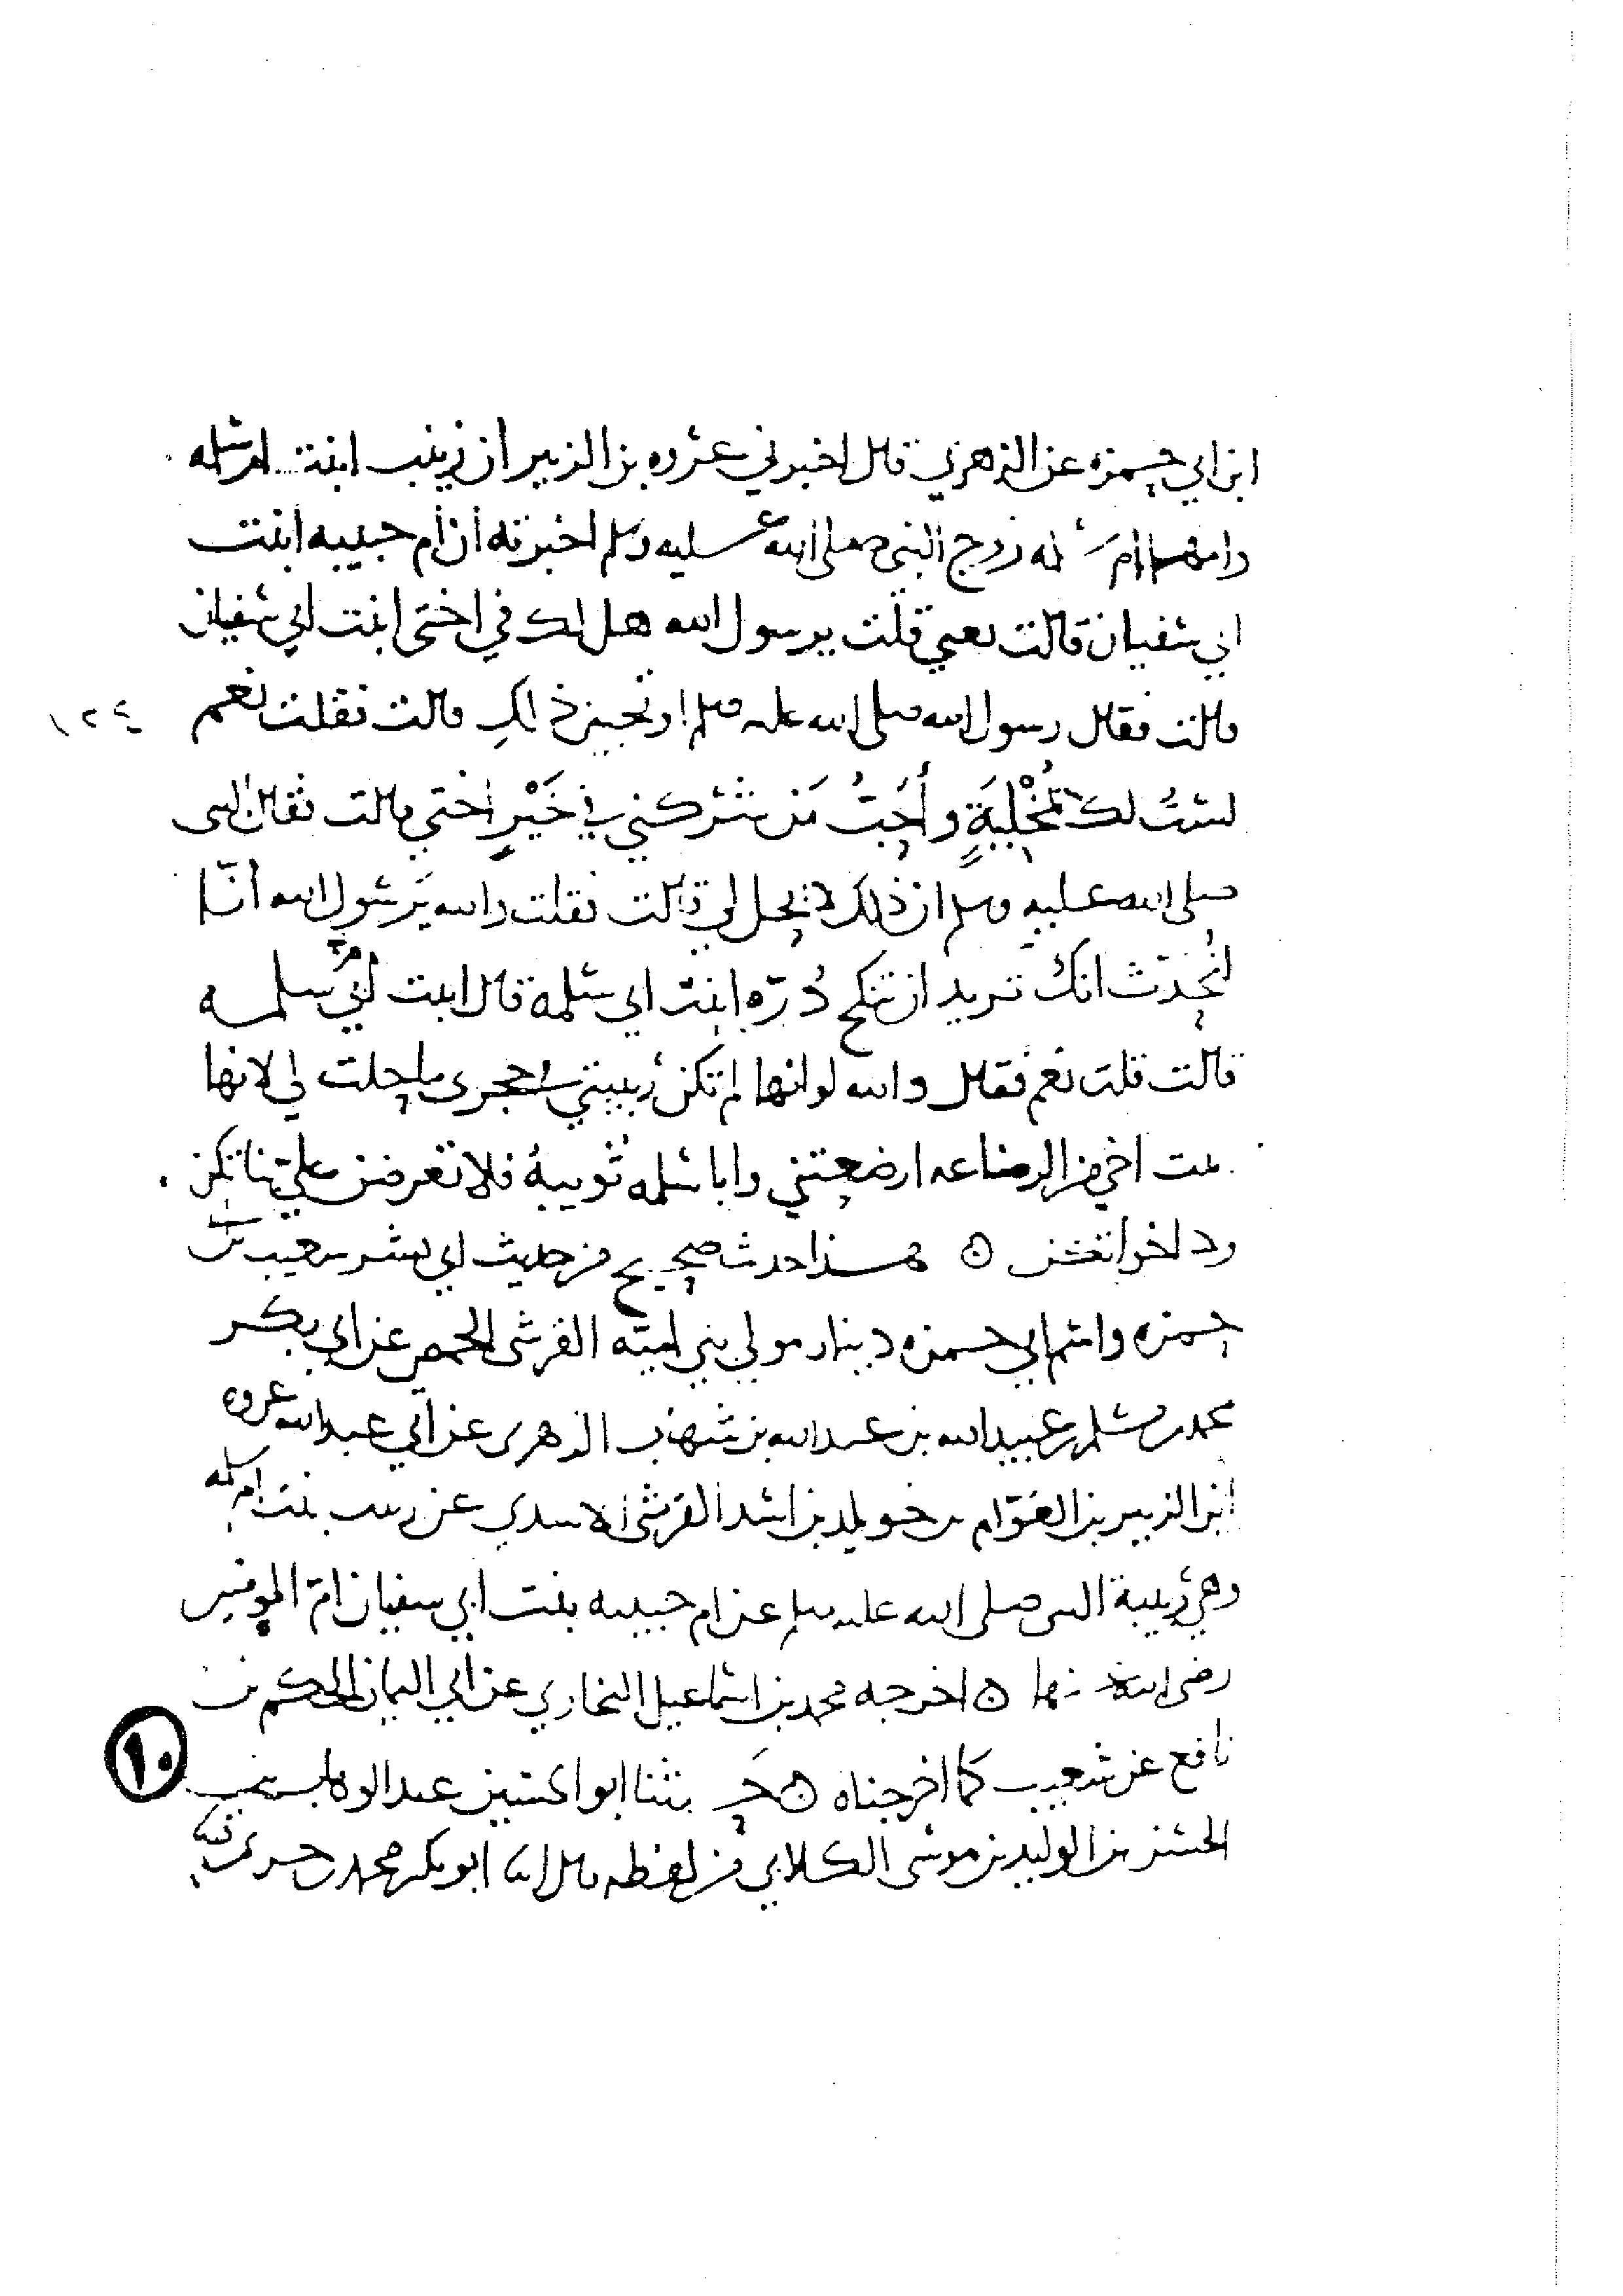 ابن ابي حمزه عن الزهري قال اخبرني عروه بن الزبير ان زينب ابنة ام سلمه
وامها ام سلمه زوج النبي صلى الله عليه وسلم اخبرته ان أم حبيبه ابنت
ابي سفيان قالت تعني قلت يرسول الله هل لك في اختى ابنت ابي سفيان
قالت فقال رسول الله صلى الله عليه وسلم او تحبين ذلكِ قالت فقلت نعم
١٢٤
لستُ لك بمُخْلِيَةٍ وأحَبُّ مَن شركني في خَيْرٍ اختي قالت فقال النبى
صلى الله عليه وسلم ان ذلك لا يحل لي قالت فقلت والله يَرسُول الله أنّا
لنُحدّث انكَ تريد ان تنكح دُرّه ابنت ابي سلمة قال ابنت أبي سلمه
قالت قلت نعم فقال والله لو انها لم تكن ربيبتي في حجرى ما حلت لي لانها
بنت اخي من الرضاعه ارضعتني وابا سلمه ثويبةُ فلا تعرضن علي بناتكن
ولا اخواتكن ۞ هذا حديث صحيح من حديث ابي بشر شعيب بن
حمزه واسم ابي حمزه دينار مولي بني امية القرشى الحمصي عن ابي بكر
محمد بن مسلم بن عبيد الله بن عبد الله بن شهاب الزهرى عن أبي عبد الله عروه
ابن الزبير بن العَوّام بن خويلد بن اسد القرشى الاسدي عن زينب بنت ام سلمه
وهي ربيبة النبى صلى الله عليه وسلم عن ام حبيبه بنت ابي سفيان امّ المومنين
رضى الله عنها ۞ اخرجه محمد بن اسماعيل البخاري عن ابي اليمان الحكم بن
نافع عن شعيب كما اخرجناه ۞ حَدثنا ابو الحسين عبد الوهاب بن
١٠
الحسن بن الوليد بن موسى الكلابي من لفظه قال انا ابو بكر محمد بن خريم